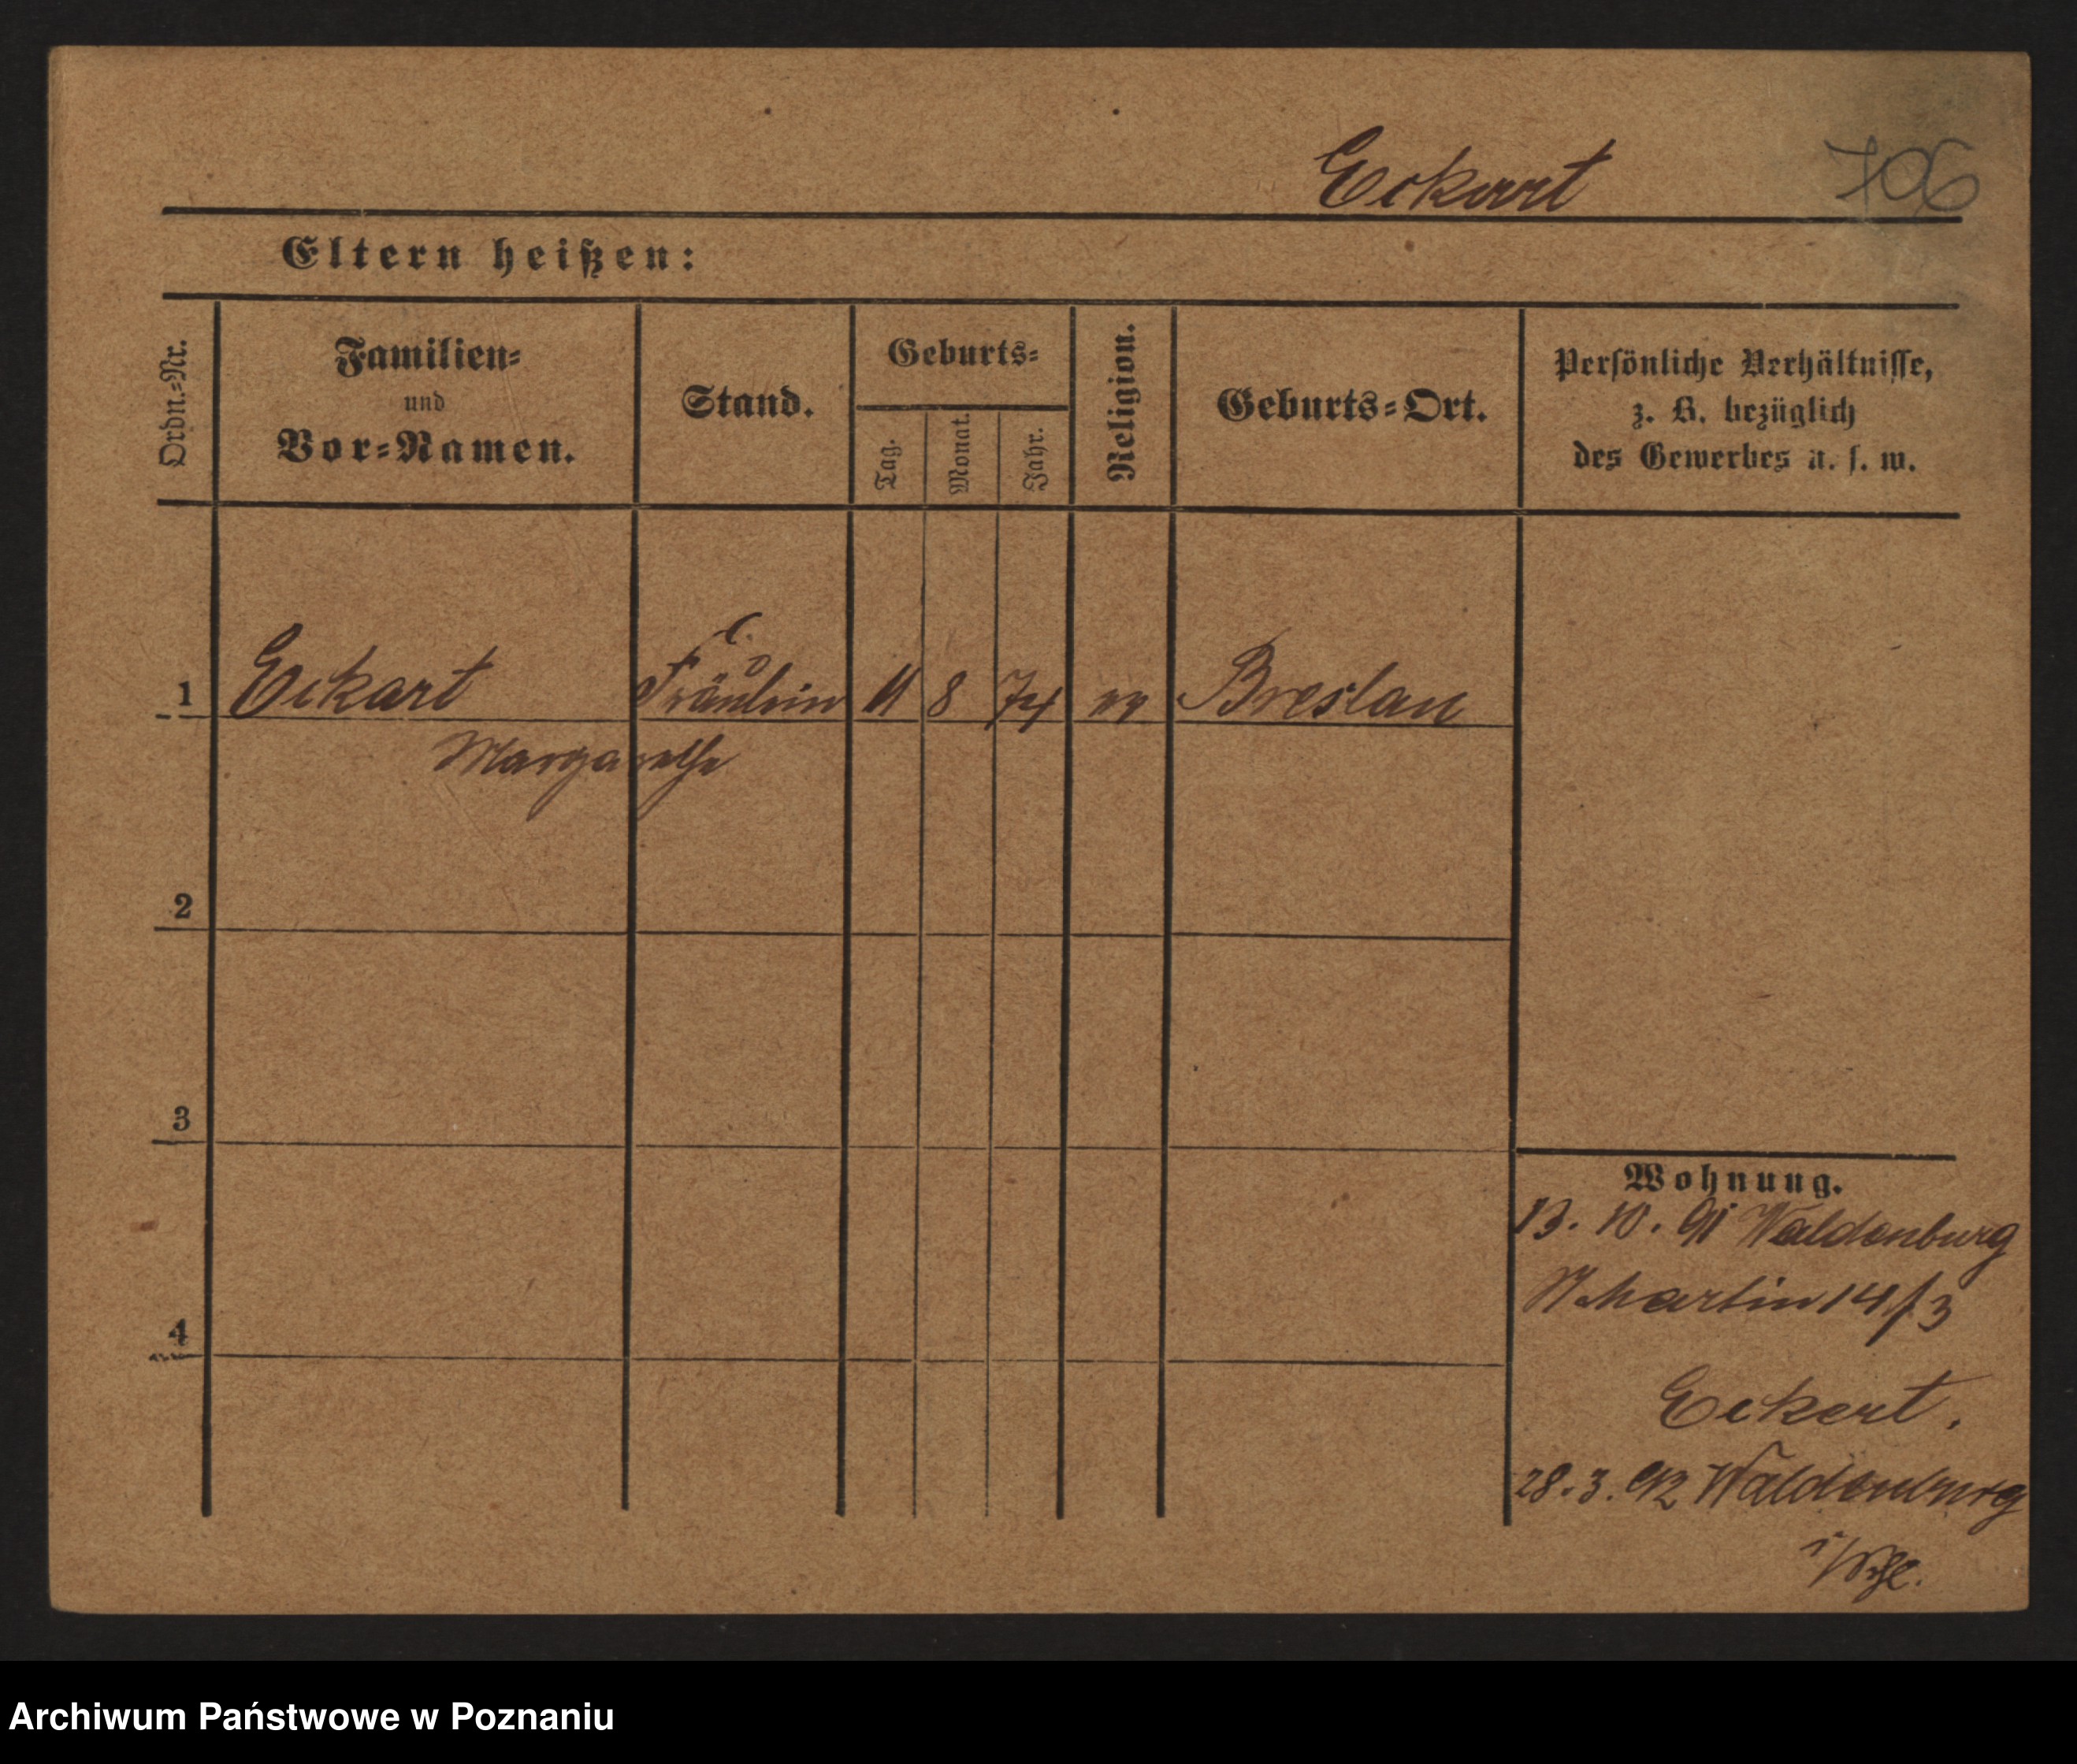 Eckart 706
Eltern heißen:
Ordn.-Nr.
Familien-
und
Vor-Namen.
Stand.
Geburts-
Tag.
Monat.
Jahr.
Religion.
Geburts-Ort.
Persönliche Verhältnisse,
z. B. bezüglich
des Gewerbes u. s. w.
1 Eckart Fräulein 11 8 74 Breslau
Margarethe
2
3
4
Wohnung.
13. 10. 91 Waldenburg
Martin 14/3
Eckert.
28.3.92 Waldenburg
Archiwum Państwowe w Poznaniu